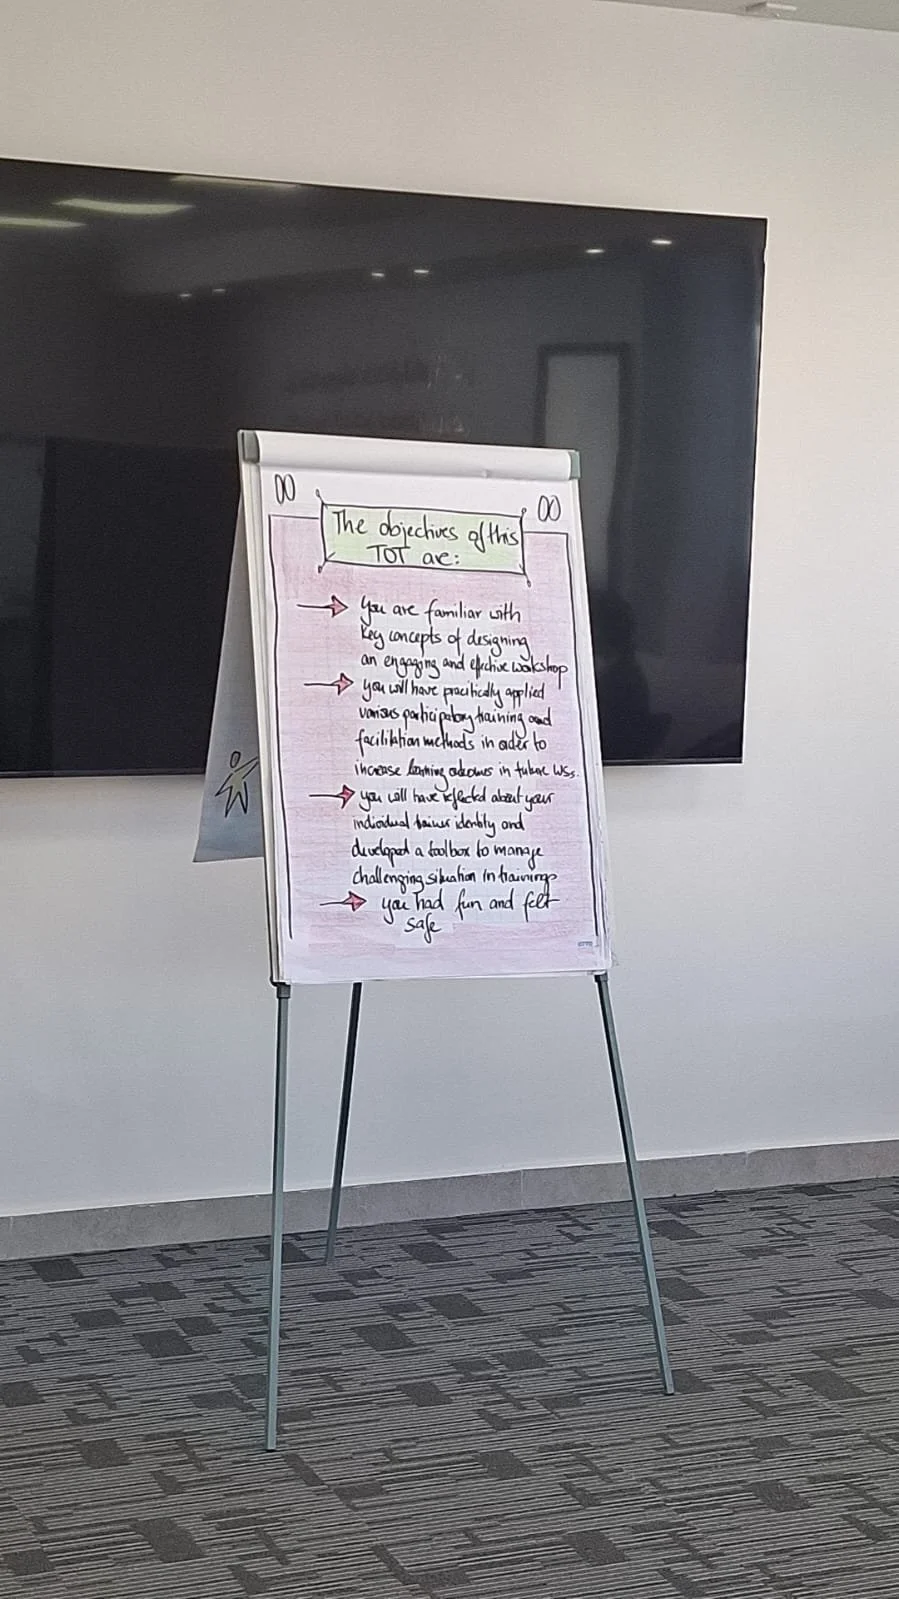 The objectives of this
TOT are:
you are familiar with
key concepts of designing
an engaging and effective workshop
you will have practically applied
various participatory training and
facilitation methods in order to
increase learning outcomes in future WSs.
you will have reflected about your
individual trainer identity and
developed a toolbox to manage
challenging situation in trainings
you had fun and felt
safe